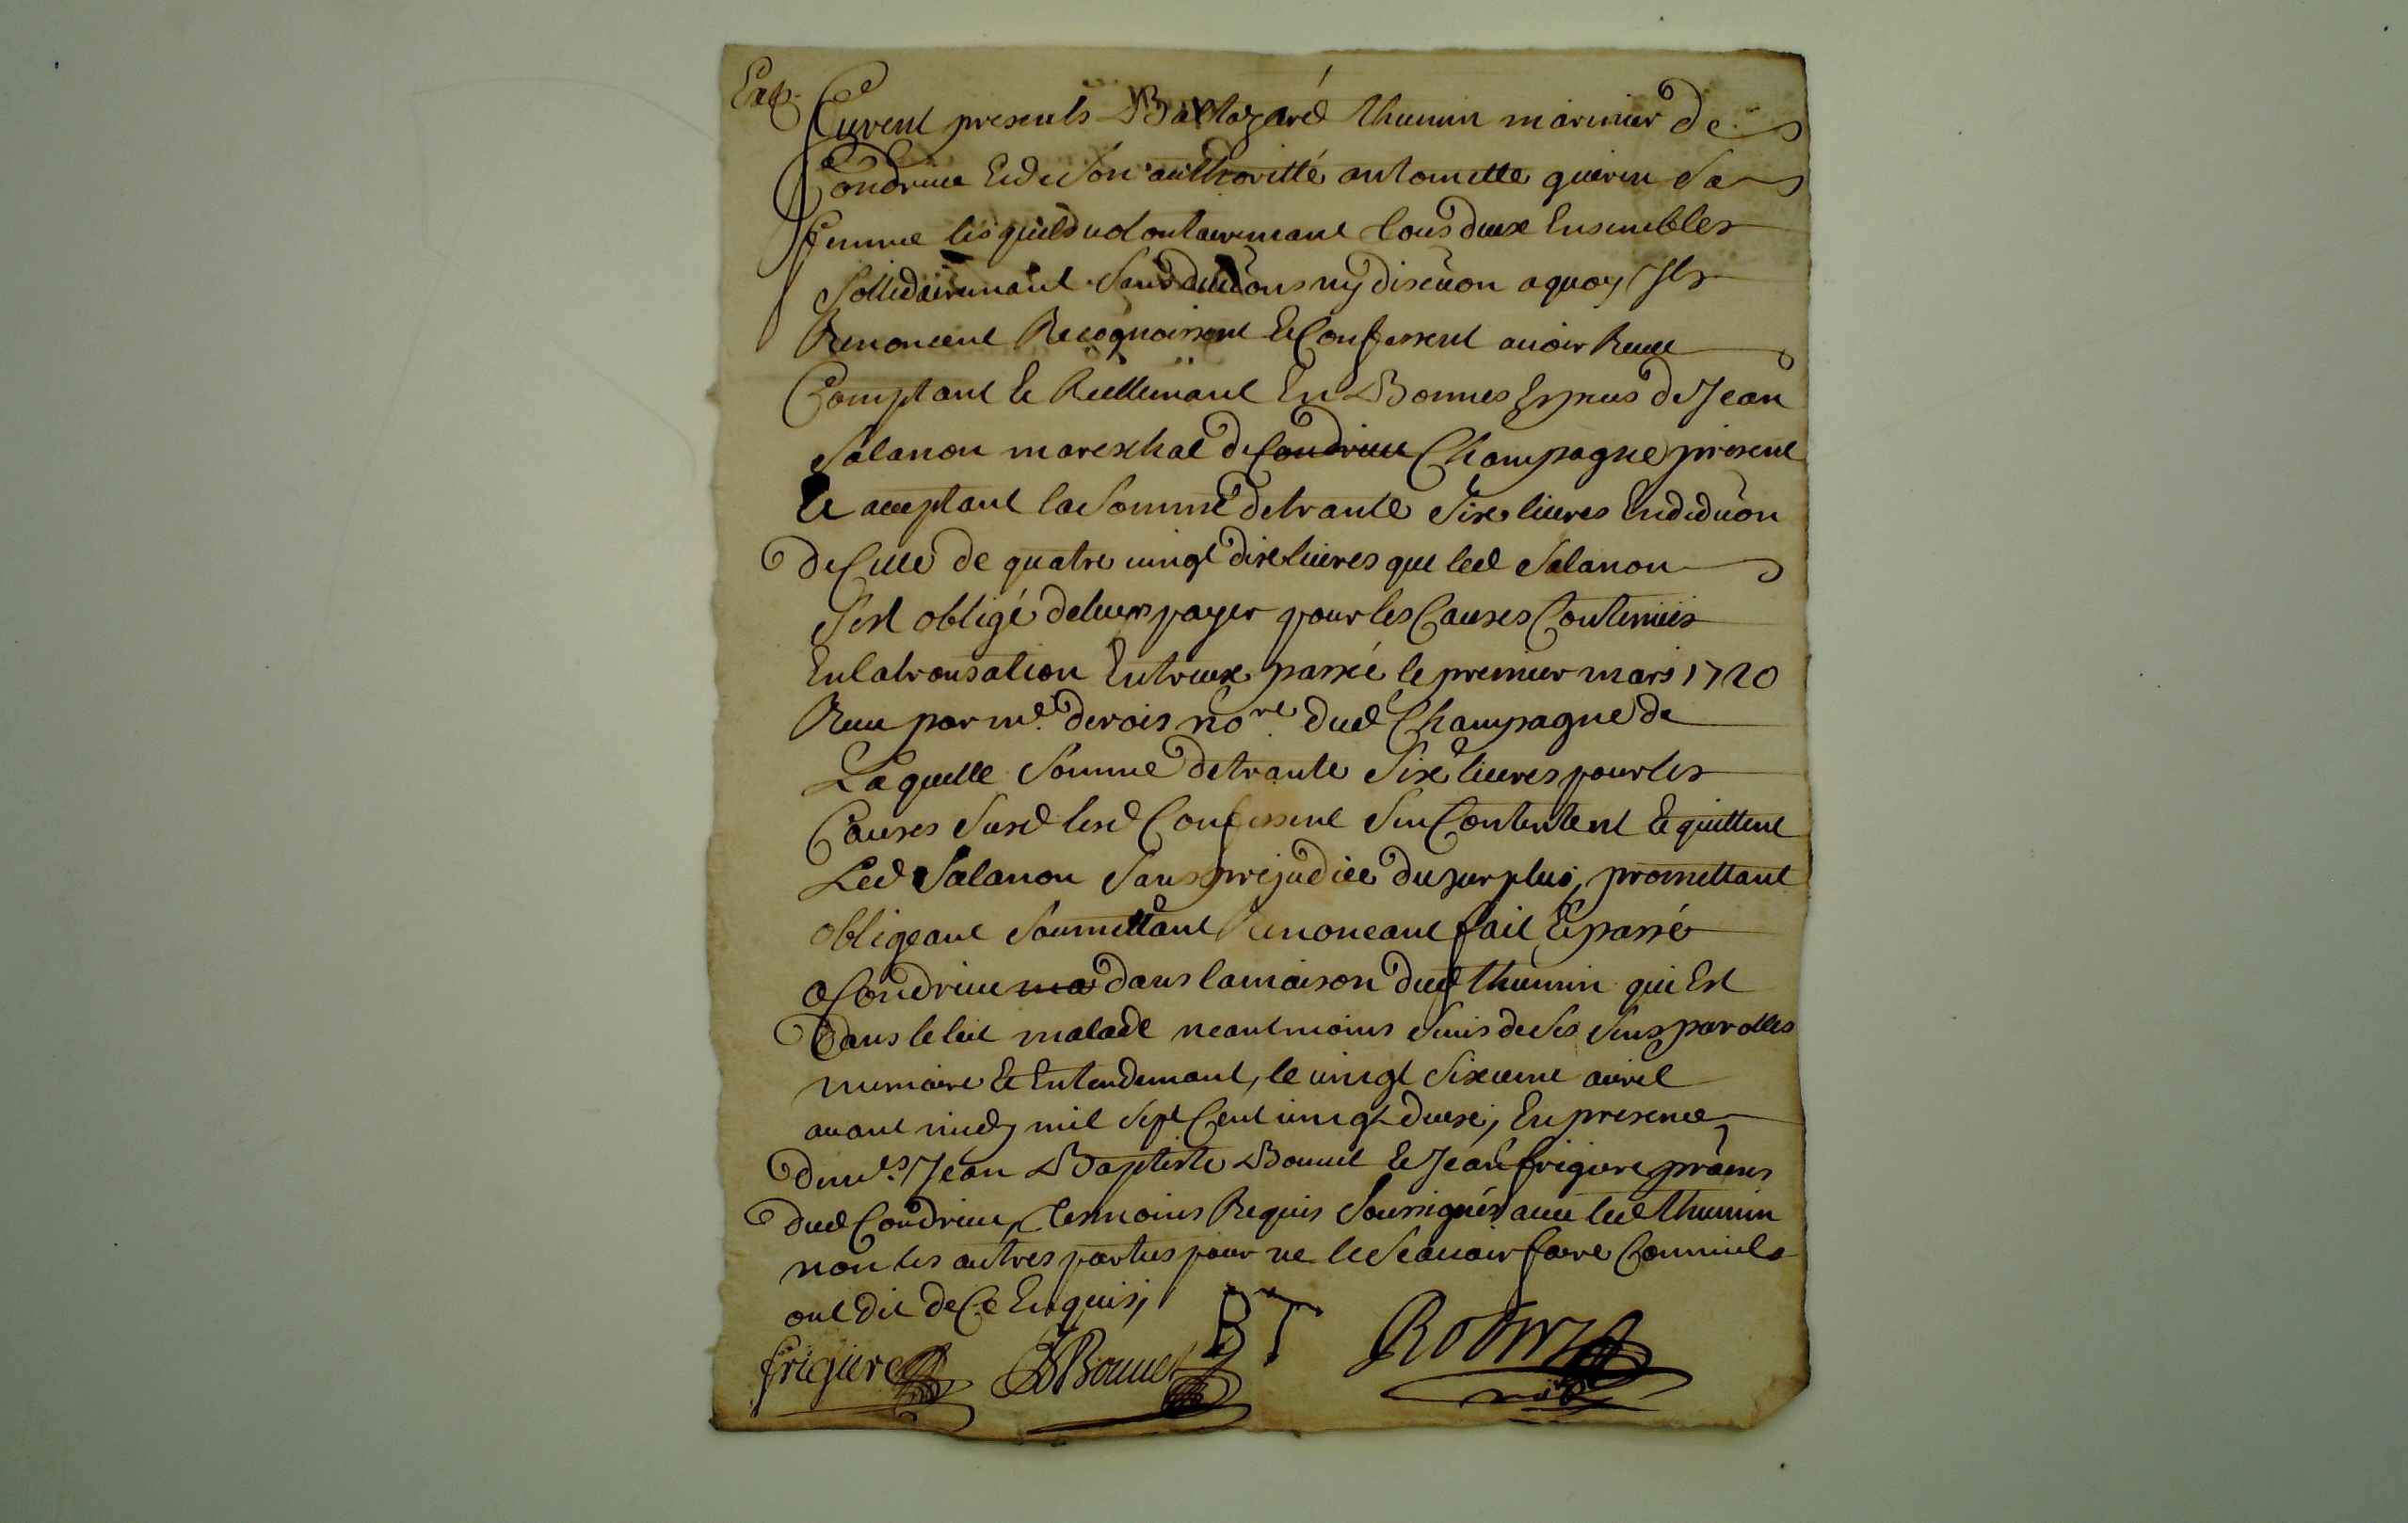 Exp.
Furent presents Baltazard thumin marinier de
Condrieu Et de son authoritté antoinette guerin sa
femme lesquels volontairemant tous deux Ensembles
sollidairemant sans division ny discūon a quoy Ils
Renoncent Recognoissent Et Confessent auoir Receu
Comptant Et Reellemant En Bonnes Especes de Jean
Salanon mareschal de Condrieu Champagne present
Et aceptant la somme de trante six liures En dedūon
de Celle de quatre uingt dix liures que led Salanon
s'est obligé de leurs payer pour les Causes Contenües
En la transation Entreux passée le premier mars 1720
Receu par me. derois nore. dud Champagne de
Laquelle somme de trante six liures pour les
Causes susd lesd Confessent s'en Contentent Et quittent
Led Salanon sans prejudice du surplus, promettant
obligeant soumettant Renonceant fait Et passé
a Condrieu ma dans la maison dud thumin qui Est
Dans le lit malade neantmoins sains de ses sens parolles
memoire Et Entendemant, le uingt sixieme auril
auant midy mil sept Cent uingt deux, En presence
de mes. Jean Baptiste Bonnet Et Jean frigiere prãens
dud Condrieu, tesmoins Requis soussignés auec led thumin
non les autres parties pour ne le scauoir faire Comme Ils
ont dit de Ce Enquis,
frigiere JBBonnet BT